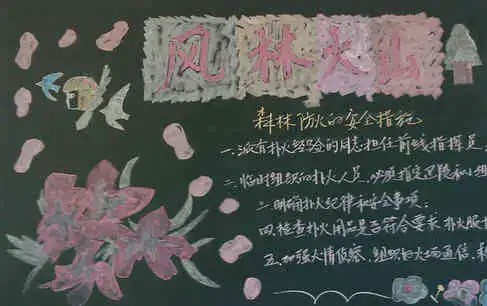 风林火山
森林防火的安全措施
一、派有扑火经验的同志担任前线指挥员
二、临时组织的扑火人员，必须指定迅
三、明确扑火纪律和安全事项。
四、检查扑火用品是否符合要求，扑火服
五、加强火情侦察，组织好火场通信、